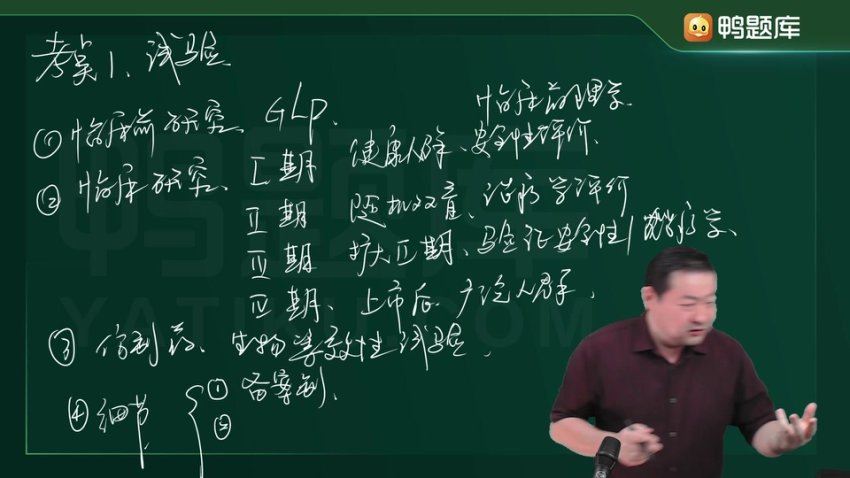 鸭题库
考点1、试验
①临床前研究、GLP.
临床药理学.
②临床研究、I期 健康人群、安全性评价.
II期 随机双盲、治疗学评价
III期 扩大II期、验证安全性/治疗学、
IV期、上市后、广泛人群.
③仿制药、生物等效性试验.
④细节 ①备案制.
②
鸭题库
YATIKU.COM